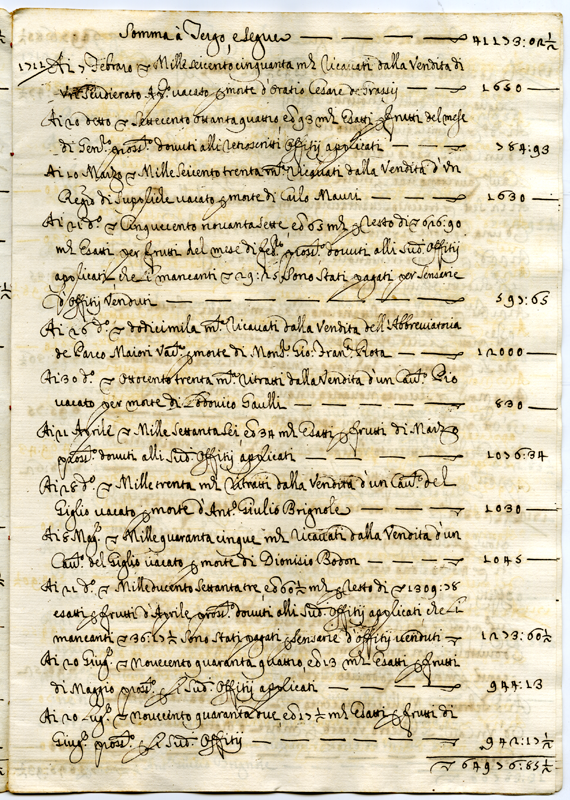 Somma à Tergo, e segue — — — 41173:02½
1711 Ai 7 Febraro ▽ Mille seicento cinquanta mta Ricavati dalla Vendita di
Scudierato Ap. vacato p morte d'Oratio Cesare de Grassy — 1650
Ai 20 detto ▽ Settecento ottanta quattro, e 93 mta Esatti p frutti del mese
di Genro pross. dovuti alli retroscritti Offitij applicati — 784:93
Ai 10 Marzo ▽ Mille Seicento trenta mta Ricavati dalla Vendita d'un
Regio di vacato p morte di Carlo Mauri — 1630
Ai 21 do ▽ Cinquecento novanta sette, ed 65 mta p resto di ▽ 626:90
mta Esatti per frutti del mese di febo pross. dovuti alli Sud. Offitij
applicati, che i mancanti ▽ 29:25 Sono Stati pagati per Senserie
d'Offitij Venduti — — — 597:65
Ai 26 do ▽ dodicimila mta Ricavati dalla Vendita dell'Abbreviatoria
de Parco Maiori Vac. p morte di Monr Gio: Franco Riota — 12000
Ai 30 do ▽ Ottocento trenta mta Ritratti dalla Vendita d'un Cavo Pio
vacato per morte di Lodovico Gaulli — 830
Ai 21 Aprile ▽ Mille Settanta Sei, ed 34 mta Esatti p frutti di Marzo
pross. dovuti alli Sud. Offitij applicati — 1076:34
Ai 28 do ▽ Mille trenta mta Ritratti dalla Vendita d'un Cavo del
Giglio vacato p morte d'Anto Giulio Brignole — 1030
Ai 8 Mago ▽ Mille quaranta cinque mta Ricavati dalla Vendita d'un
Cavo del Giglio vacato p morte di Dionisio Bodon — 1045
Ai 21 do ▽ Mille ducento Settanta tre, ed 60½ mta p resto di ▽ 1309:78
esatti p frutti d'Aprile pross. dovuti alli Sud. Offitij applicati che i
mancanti ▽ 36:17½ Sono Stati pagati p Senserie d'offitij venduti — 1273:60½
Ai 20 Giugo ▽ Novecento quaranta quattro, ed 13 mta Esatti p frutti
di Maggio pross. p i Sud. Offitij applicati — 944:13
Ai 20 Lugo ▽ Novecento quaranta due, ed 17½ mta Esatti p frutti di
Giugo pross. p i Sud. Offitij — 942:17½
▽ 64976:85½